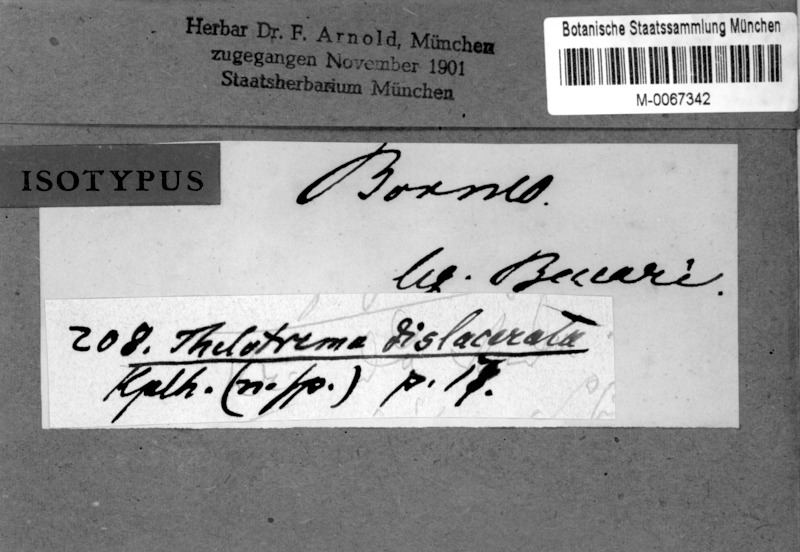 Herbar Dr. F. Arnold, München
zugegangen November 1901
Staatsherbarium München
Botanische Staatssammlung München
M-0067342
ISOTYPUS
Borneo.
Beccari.
208. Thelotrema dislacerata
Kplh. (n. sp.) p. 17.